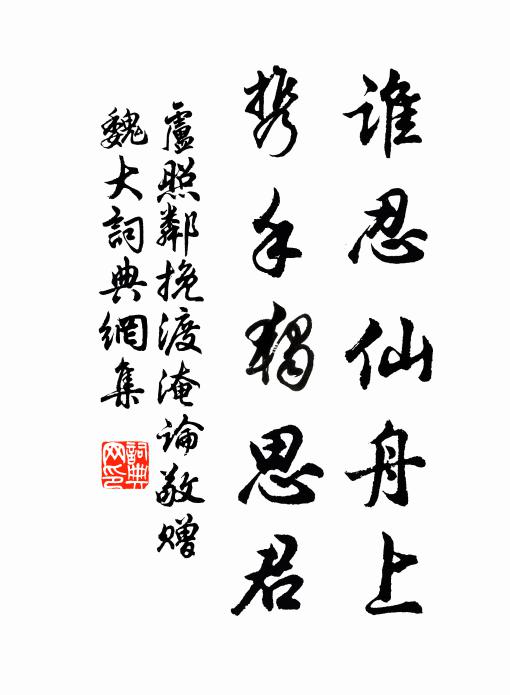 誰忍仙舟上
携手獨思君
盧照鄰挽渡淹論敬贈
魏大詞典網集
詞典
网印